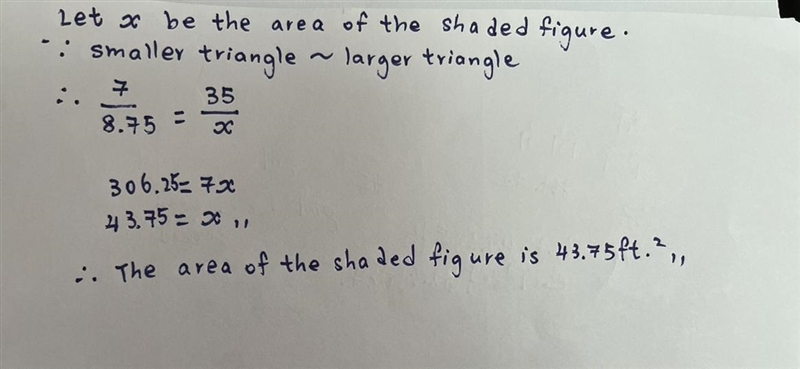 Let x be the area of the shaded figure.
∵ smaller triangle ~ larger triangle
∴ 7/8.75 = 35/x
306.25 = 7x
43.75 = x ,,
∴ The area of the shaded figure is 43.75ft.² ,,